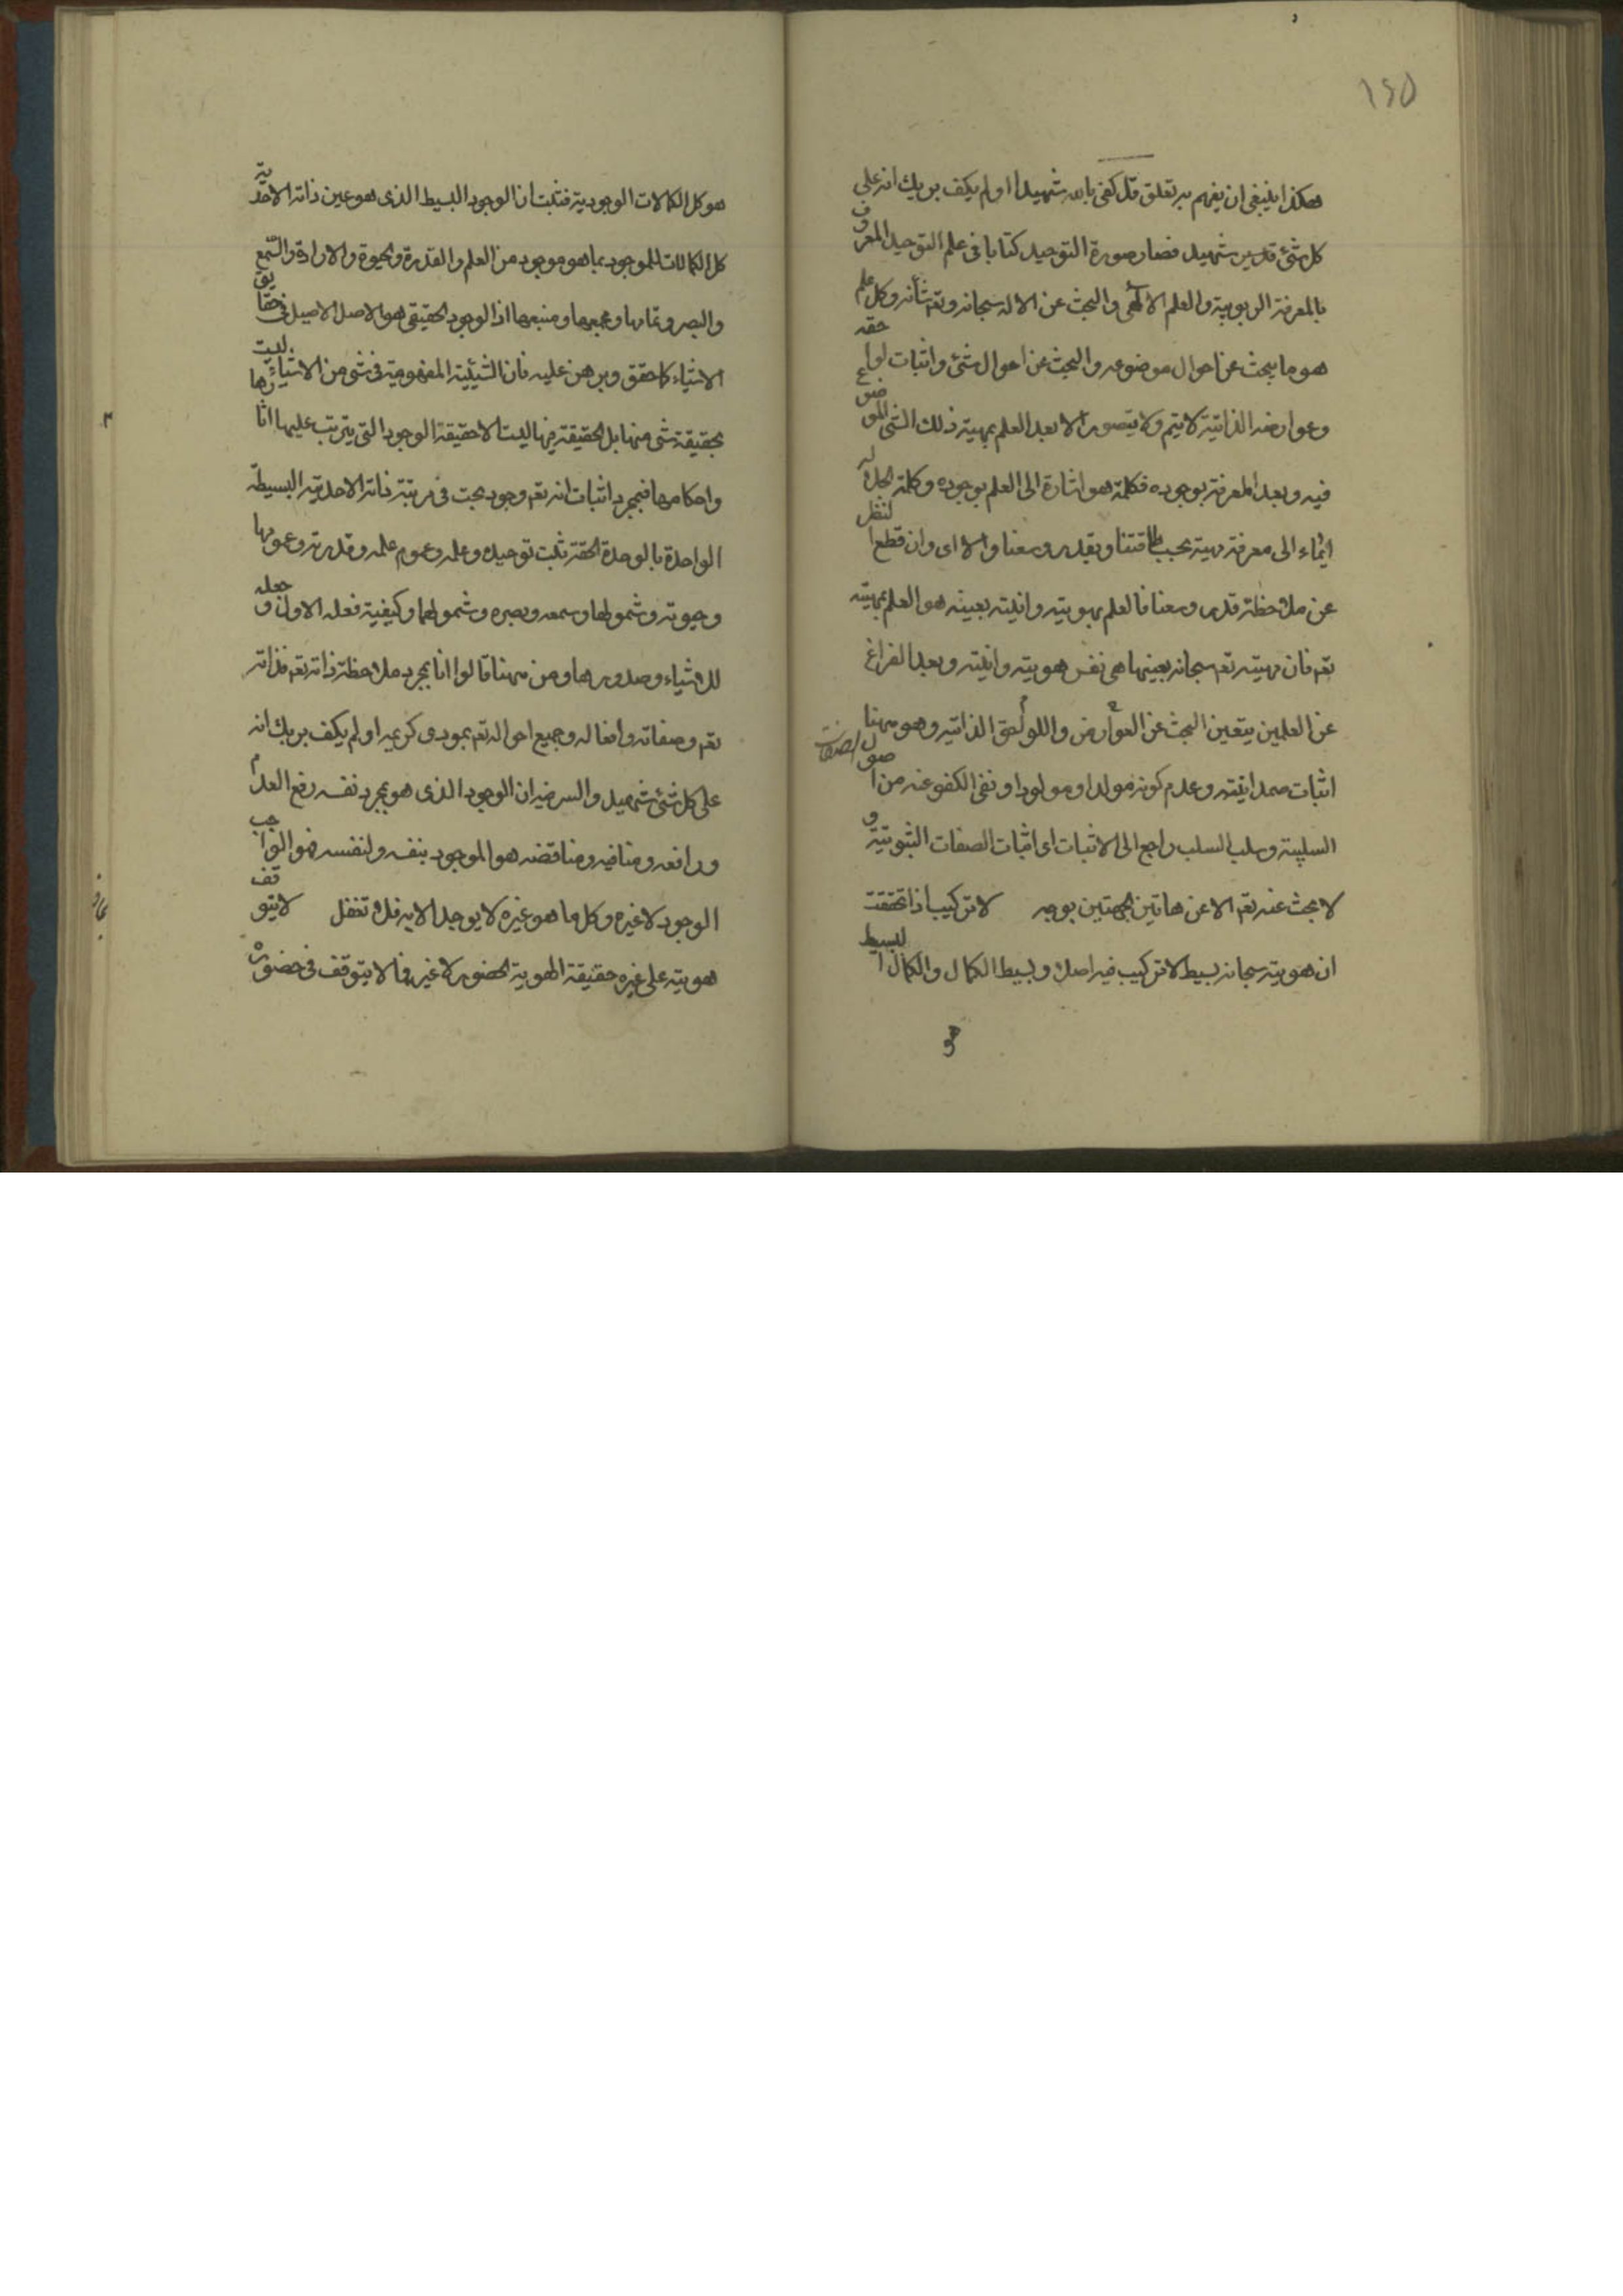 ١٤٥
هكذا ينبغى ان يفهم سر تعلق قل كفى بالله شهيدا اولم يكف بربك انه على
كل شئ قدير شهيد فصار صورة التوحيد كتابا فى علم التوحيد المعروف
بالمعرفة الربوبية والعلم الالهى والبحث عن الاله سبحانه وتعه شأنه وكل علم
هو ما يبحث عن احوال موضوعه والبحث عن احوال شئ واثبات لواحقه
وعوارضه الذاتية لا يتم ولا يتصور الا بعد العلم بمهية ذلك الشئ الموضوع
فيه وبعد المعرفة بوجوده فكلمة هو اشارة الى العلم بوجوده وكلمة الجلاله
ايماء الى معرفة مهية بحسب طاقتنا وبقدر وسعنا والا اى وان قطع النظر
عن ملاحظة قدر وسعنا فالعلم بهويته وانيته بعينه هو العلم بمهيته
تعه فان مهيته تعه سبحانه بعينها هى نفس هويته وانيته وبعد الفراغ
عن العلمين يتعين البحث عن العوارض واللواحق الذاتيه وهو مهنا
اثبات صمدانيته وعدم كونه مولدا ومولودا ونفى الكفو عنه من الصفات
السلبية وسلب السلب راجع الى الاثبات اى اثبات الصفات الثبوتية و
لا بحث عنه تعه الا عن هاتين الجهتين بوجه لا تركيب اذا تحققت
ان هويته سبحانه بسيط لا تركيب فيه اصلا وبسيط الكمال والكمال البسيط
هو
هو كل الكمالات الوجودية فثبت ان الوجود البسيط الذى هو عين ذاته الاحدية
كل الكمالات للموجود بما هو موجود من العلم والقدرة والحيوة والارادة والسمع
والبصر وتمامها ومجمعها ومنبعها اذ الوجود الحقيقى هو الاصل الاصيل فى حقايق
الاشياء كما حقق وبرهن عليه فان الشيئية المفهومية فى شئ من الاشياء ليست
بحقيقة شئ منها بل الحقيقة فيها ليست الا حقيقة الوجود التى يترتب عليها اثارها
واحكامها فبمجرد اثبات انه تعه وجود بحت فى مرتبة ذاته الاحدية البسيطة
الواحدة بالوحدة الحقة ثبت توحيده وعلمه وعموم علمه وقدرته وعمومها
وحيوته وشمولها وسمعه وبصره وشمولهما وكيفية فعله الاول و جعله
للاشياء وصدورها ومن مهنا قالوا انا بمجرد ملاحظة ذاته تعه فذاته
تعه وصفاته وافعاله وجميع احواله تعه بمودى كريمه اولم يكف بربك انه
على كل شئ شهيد والسر فيه ان الوجود الذى هو بمجرد نفسه رفع العدم
ورافعه ومنافيه ومناقضه هو الموجود بنفسه ولنفسه فهو الواجب
الوجود لا غيره وكل ما هو غيره لا يوجد الا به فلا تغفل لا يتوقف
هويته على غيره حقيقة الهوية الحضور لا غير فما لا يتوقف فى حضوره